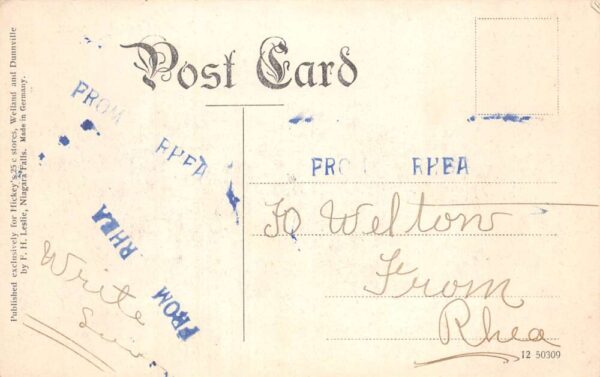 Published exclusively for Hickey's 25 c stores, Welland and Dunnville
by F. H. Leslie, Niagara Falls. Made in Germany.
Post Card
FROM RHEA
FROM RHEA
FROM RHEA
To Welton
From
Rhea
Write
12 50309